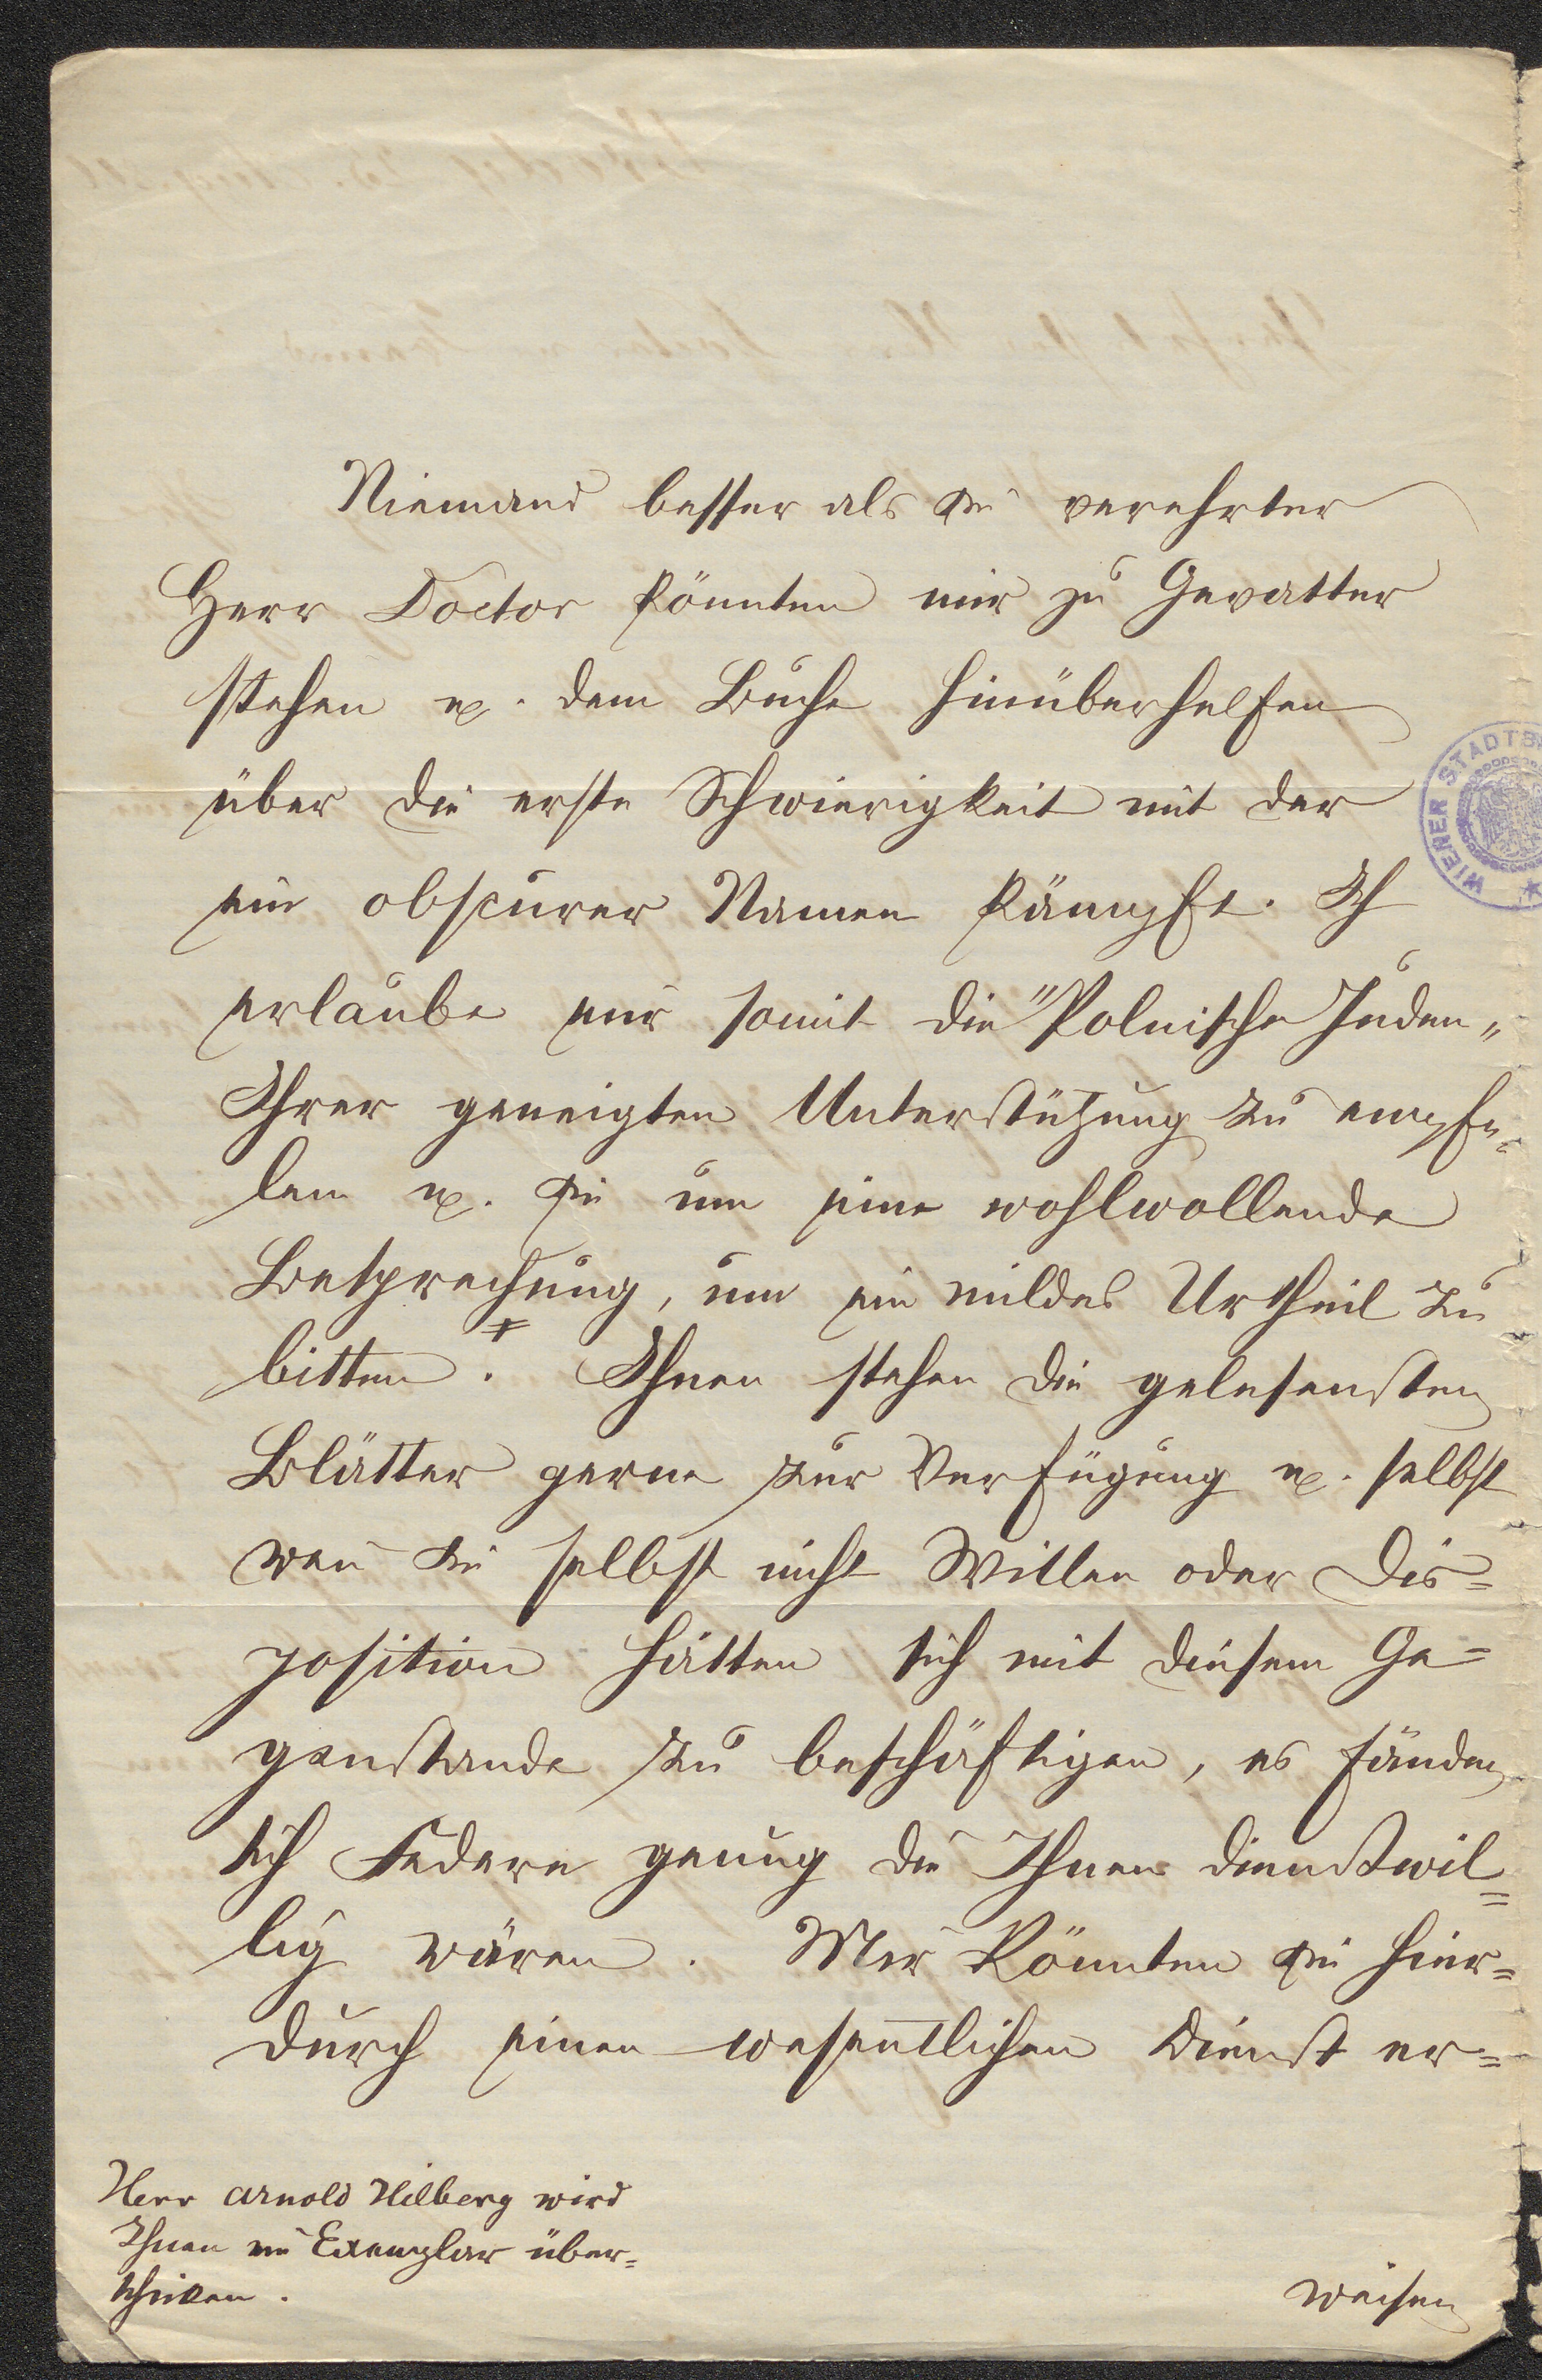 Niemand besser als Sie verehrter
Herr Doctor könnten mir zu Gevatter
stehen u. dem Buche hinüberhelfen
über die erste Schwierigkeit mit der
ein obscurer Namen kämpft. Ich
erlaube mir somit die "Polnische Juden"
Ihrer geneigten Unterstützung zu empfe-
len u. Sie um eine wohlwollende
Besprechung, um ein mildes Urtheil zu
bitten. ⨯ Ihnen stehen die gelesensten
Blätter gerne zur Verfügung u. selbst
wen̄ Sie selbst nicht Willen oder Dis=
position hätten sich mit diesem Ge=
genstande zu beschäftigen, es fänden
sich Federn genug die Ihnen dienstwil=
lig wären. Mir könnten Sie hier=
durch einen wesentlichen Dienst er=
weisen
Herr Arnold Hilberg wird
Ihnen ein Exemplar über=
schicken.
WIENER STADTB